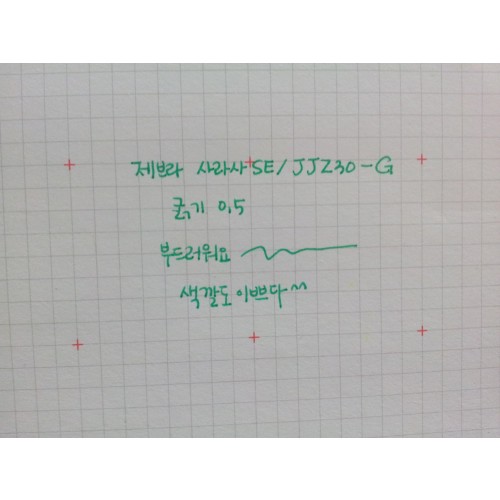 제브라 사라사 SE/JJZ30-G
굵기 0.5
부드러워요
색깔도 이쁘다~